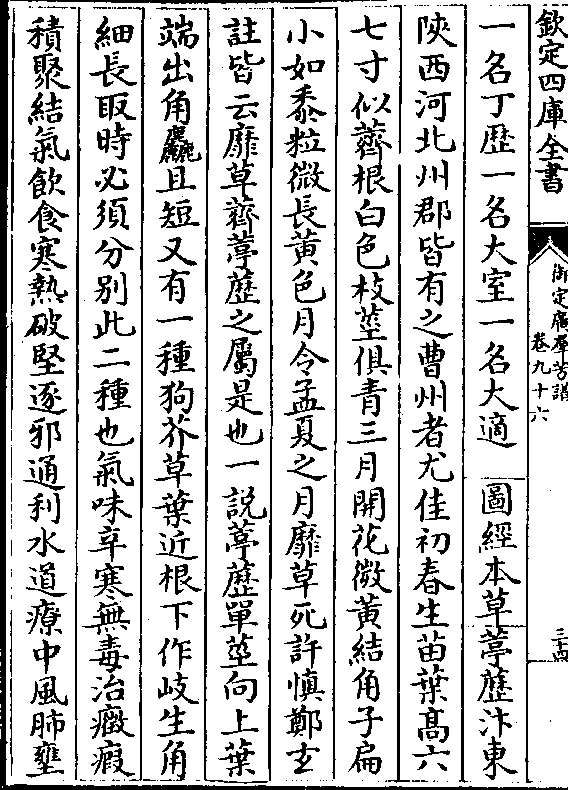 欽定四庫全書
御定廣羣芳譜
卷九十六
三十四
一名丁歴一名大室一名大適 圖經本草葶藶汴東
陝西河北州郡皆有之曹州者尤佳初春生苗葉髙六
七寸似薺根白色枝莖俱青三月開花微黄結角子扁
小如黍粒微長黄色月令孟夏之月靡草死許慎鄭𤣥
註皆云靡草薺葶藶之屬是也一説葶藶單莖向上葉
端出角麤且短又有一種狗芥草葉近根下作歧生角
細長取時必須分别此二種也氣味辛寒無毒治癥瘕
積聚結氣飲食寒熱破堅逐邪通利水道療中風肺壅